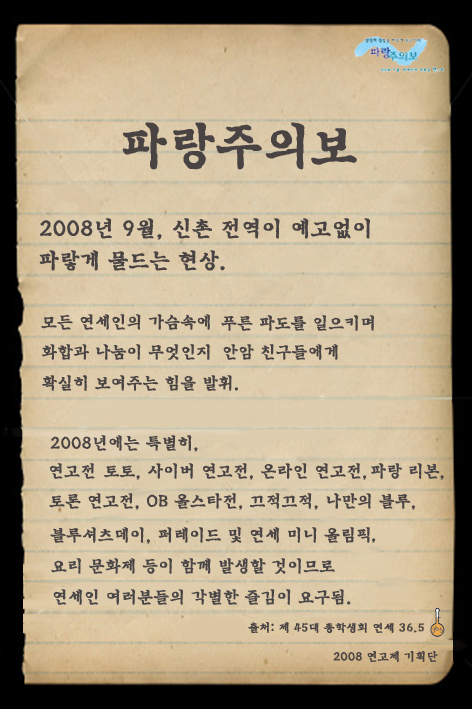 파랑주의보
파랑주의보
2008년 9월, 신촌 전역이 예고없이
파랗게 물드는 현상.
모든 연세인의 가슴속에 푸른 파도를 일으키며
화합과 나눔이 무엇인지 안암 친구들에게
확실히 보여주는 힘을 발휘.
2008년에는 특별히,
연고전 토토, 사이버 연고전, 온라인 연고전, 파랑 리본,
토론 연고전, OB 올스타전, 끄적끄적, 나만의 블루,
블루셔츠데이, 퍼레이드 및 연세 미니 올림픽,
요리 문화제 등이 함께 발생할 것이므로
연세인 여러분들의 각별한 즐김이 요구됨.
출처: 제 45대 총학생회 연세 36.5
2008 연고제 기획단